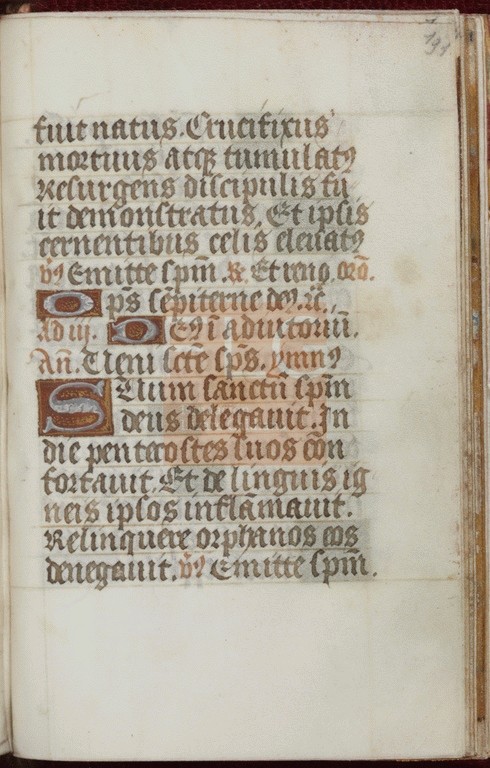 191
fuit natus. Crucifixus
mortuus atqꝫ tumulatꝰ
Resurgens discipulis fu
it demonstratus. Et ipsis
cernentibus celis eleuatꝰ
v̾ꝰ Emitte sp̄m. R̾. Et reno. oro̅.
Op̄s se̅piterne deꝰ. ⁊c̄.
Ad iii. Deꝰ i̅ adiutoriu̅.
An̄. Ueni sc̄te sp̄s. ymnꝰ
Suum sanctu̅ sp̄m
deus delegauit. In
die pentecostes suos co̅n
fortauit. Et de linguis ig
neis ipsos infla̅mauit.
Relinquere orphanos eos
denegauit. v̾ꝰ Emitte sp̄m.